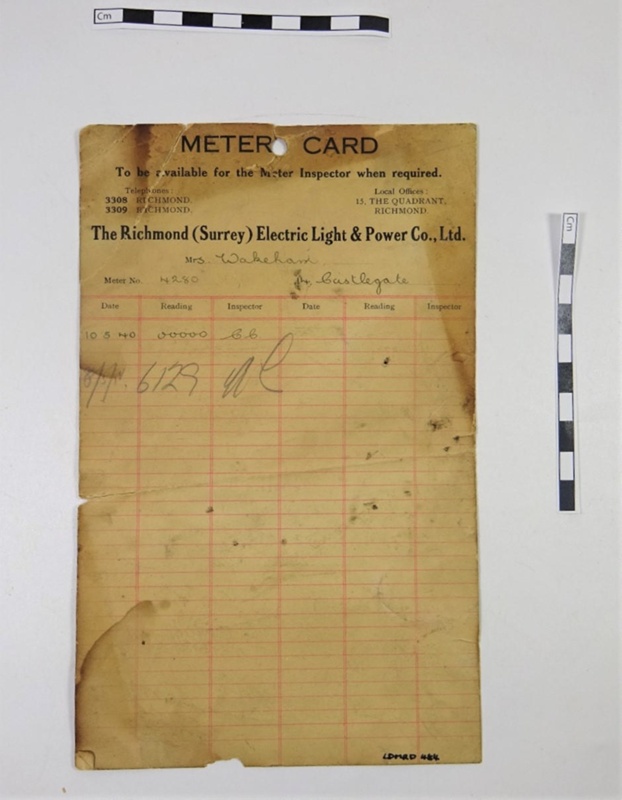 Cm
METER CARD
To be available for the Meter Inspector when required.
Telephones: Local Offices:
3308 RICHMOND. 15, THE QUADRANT,
3309 RICHMOND. RICHMOND.
The Richmond (Surrey) Electric Light & Power Co., Ltd.
Mrs. Wakeham
Meter No. 4280 Castlegate
Date Reading Inspector Date Reading Inspector
10 5 40 00000 C.C
6129
LDMRD 444
Cm